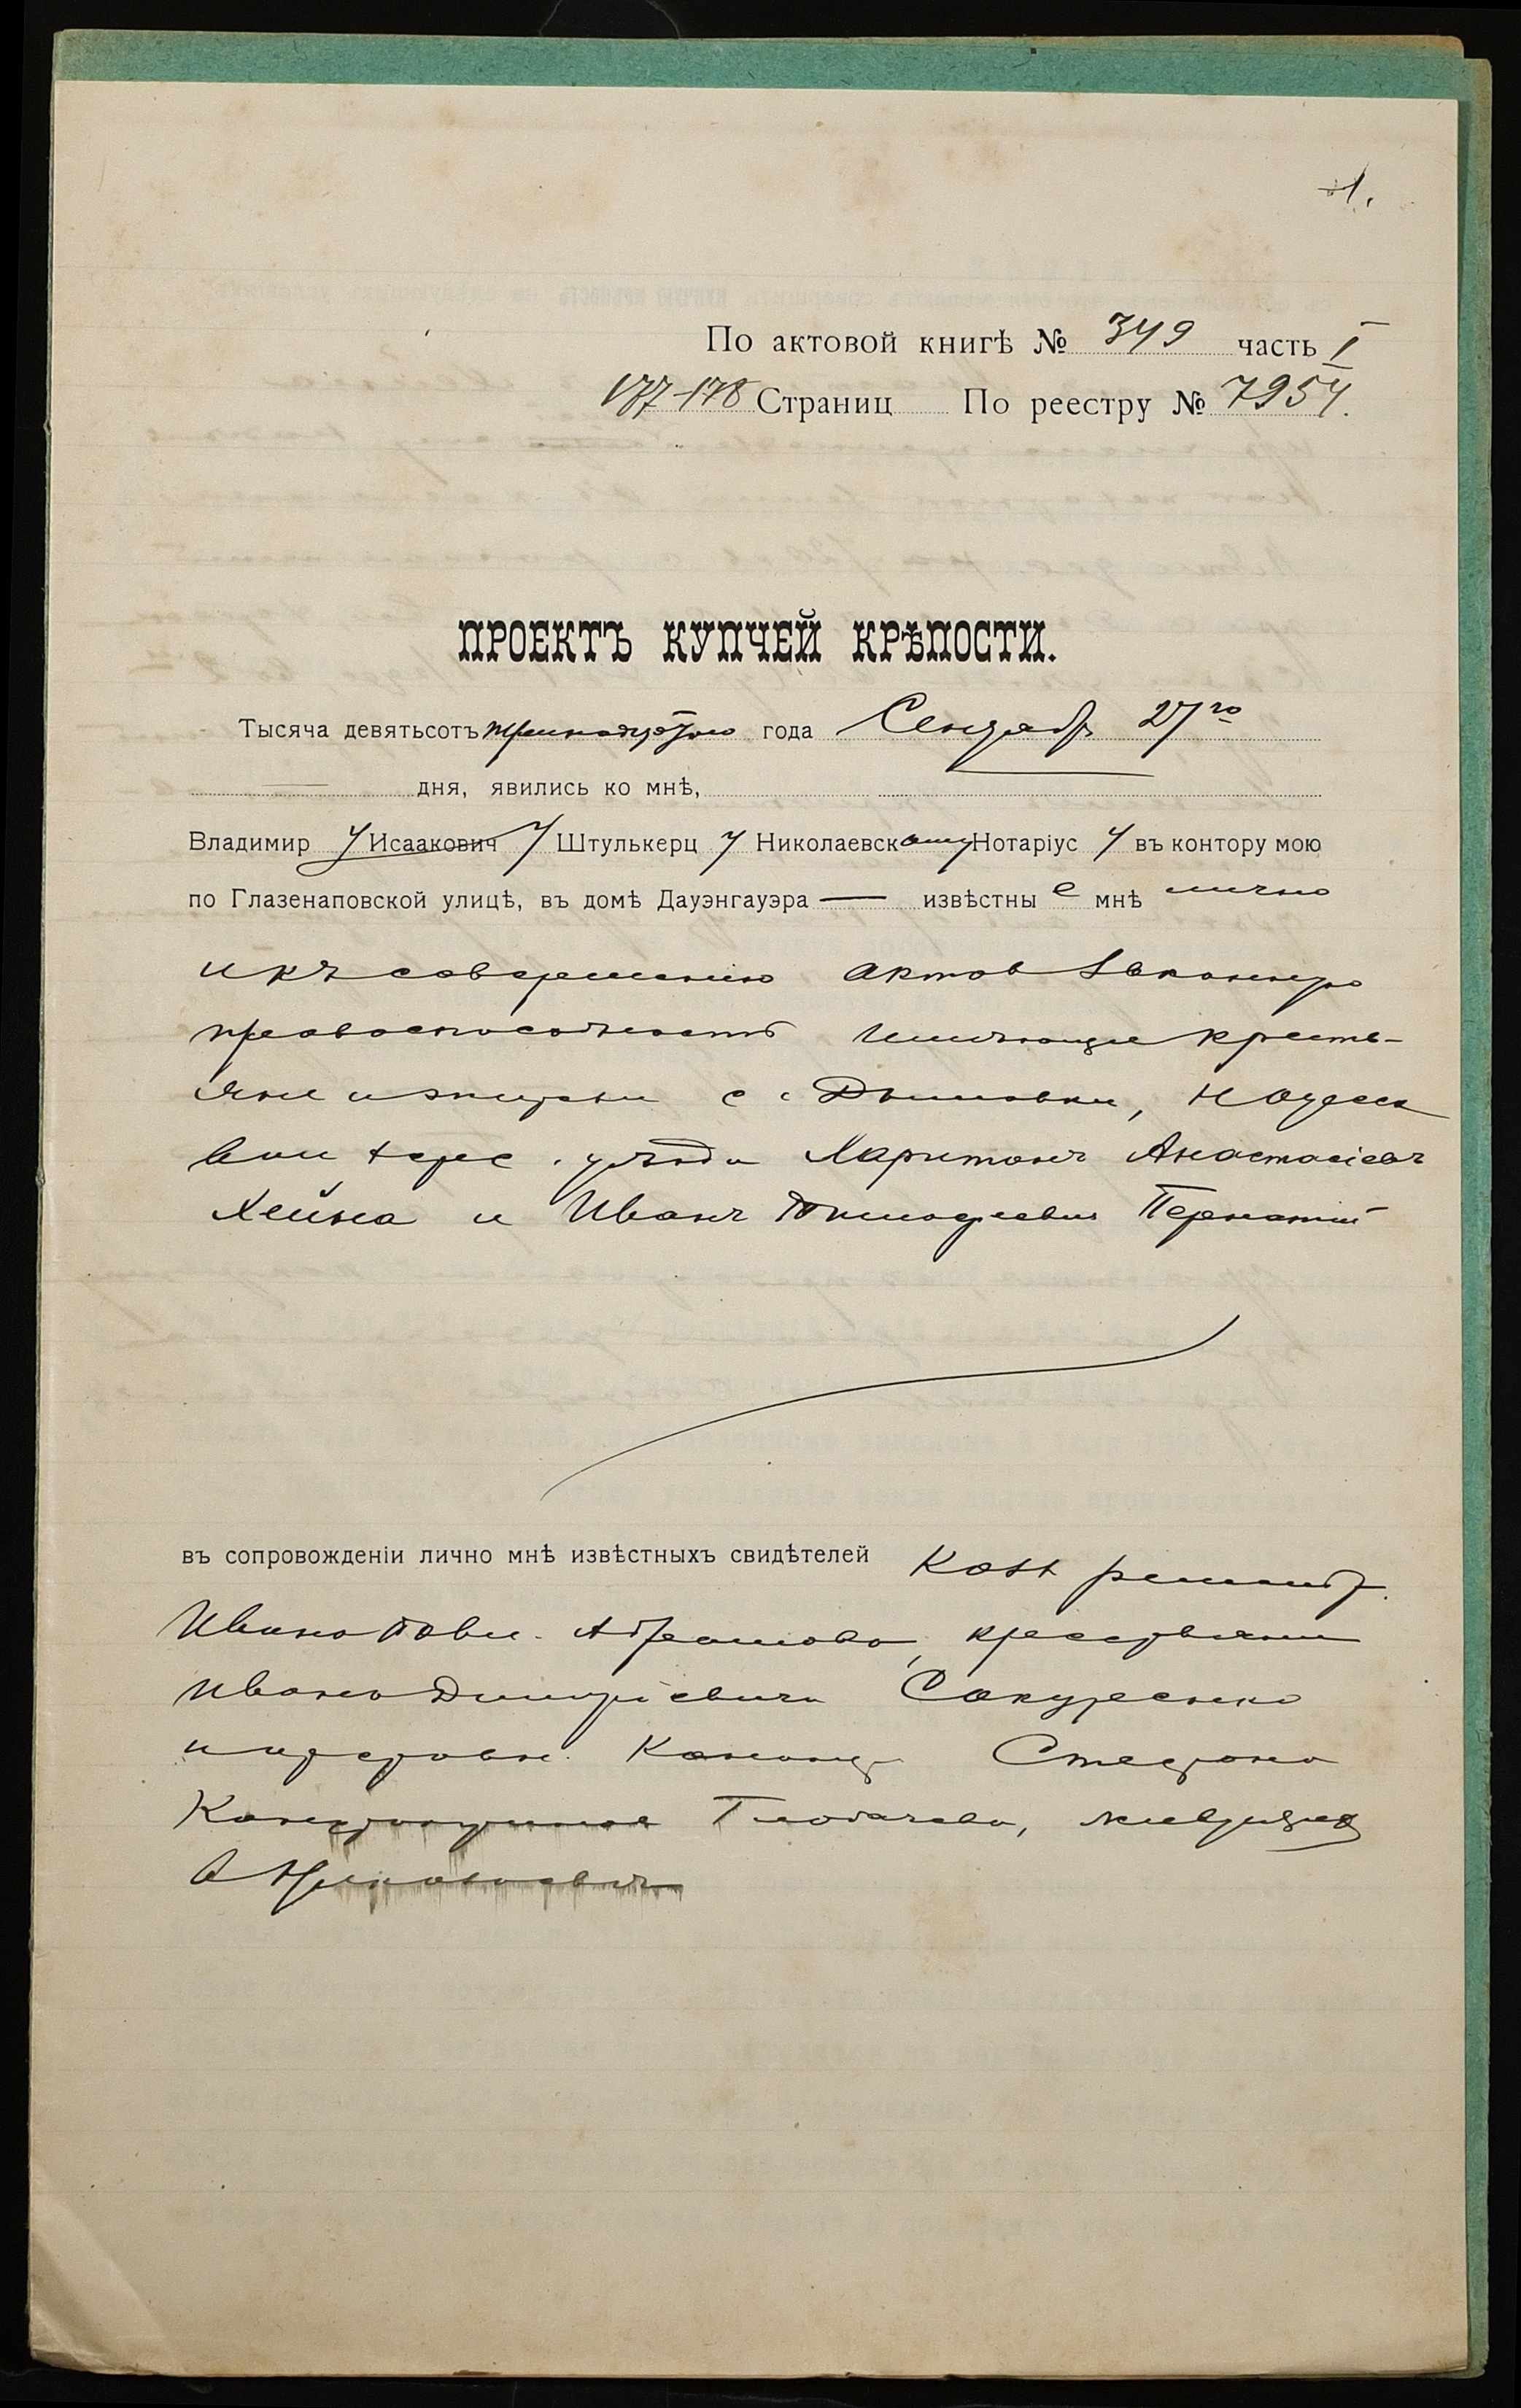 1.
По актовой книгѣ № 349 часть I
177-178 Страниц По реестру № 7954.
ПРОЕКТЪ КУПЧЕЙ КРѢПОСТИ.
Тысяча девятьсотъ тринадцатого года Сентября 27го
дня, явились ко мнѣ,
Владимир Исаакович Штулькерц Николаевск Нотаріус въ контору мою
по Глазенаповской улицѣ, въ домѣ Дауэнгауэра — извѣстны е мнѣ лично
и къ совершенію актов законную
правоспособность имѣющіе кресть-
яне и жители с. Дымовки, Одесск
уѣзда Харитонъ Анастасіевъ
Хейна и Иванъ Тимофеевич Пернатій
въ сопровожденіи лично мнѣ извѣстныхъ свидѣтелей
Ивана Абрамова, крестьянина
Ивана Дмитріевича
и Степана
Константинова Глобачева, живущих
в Николаевѣ